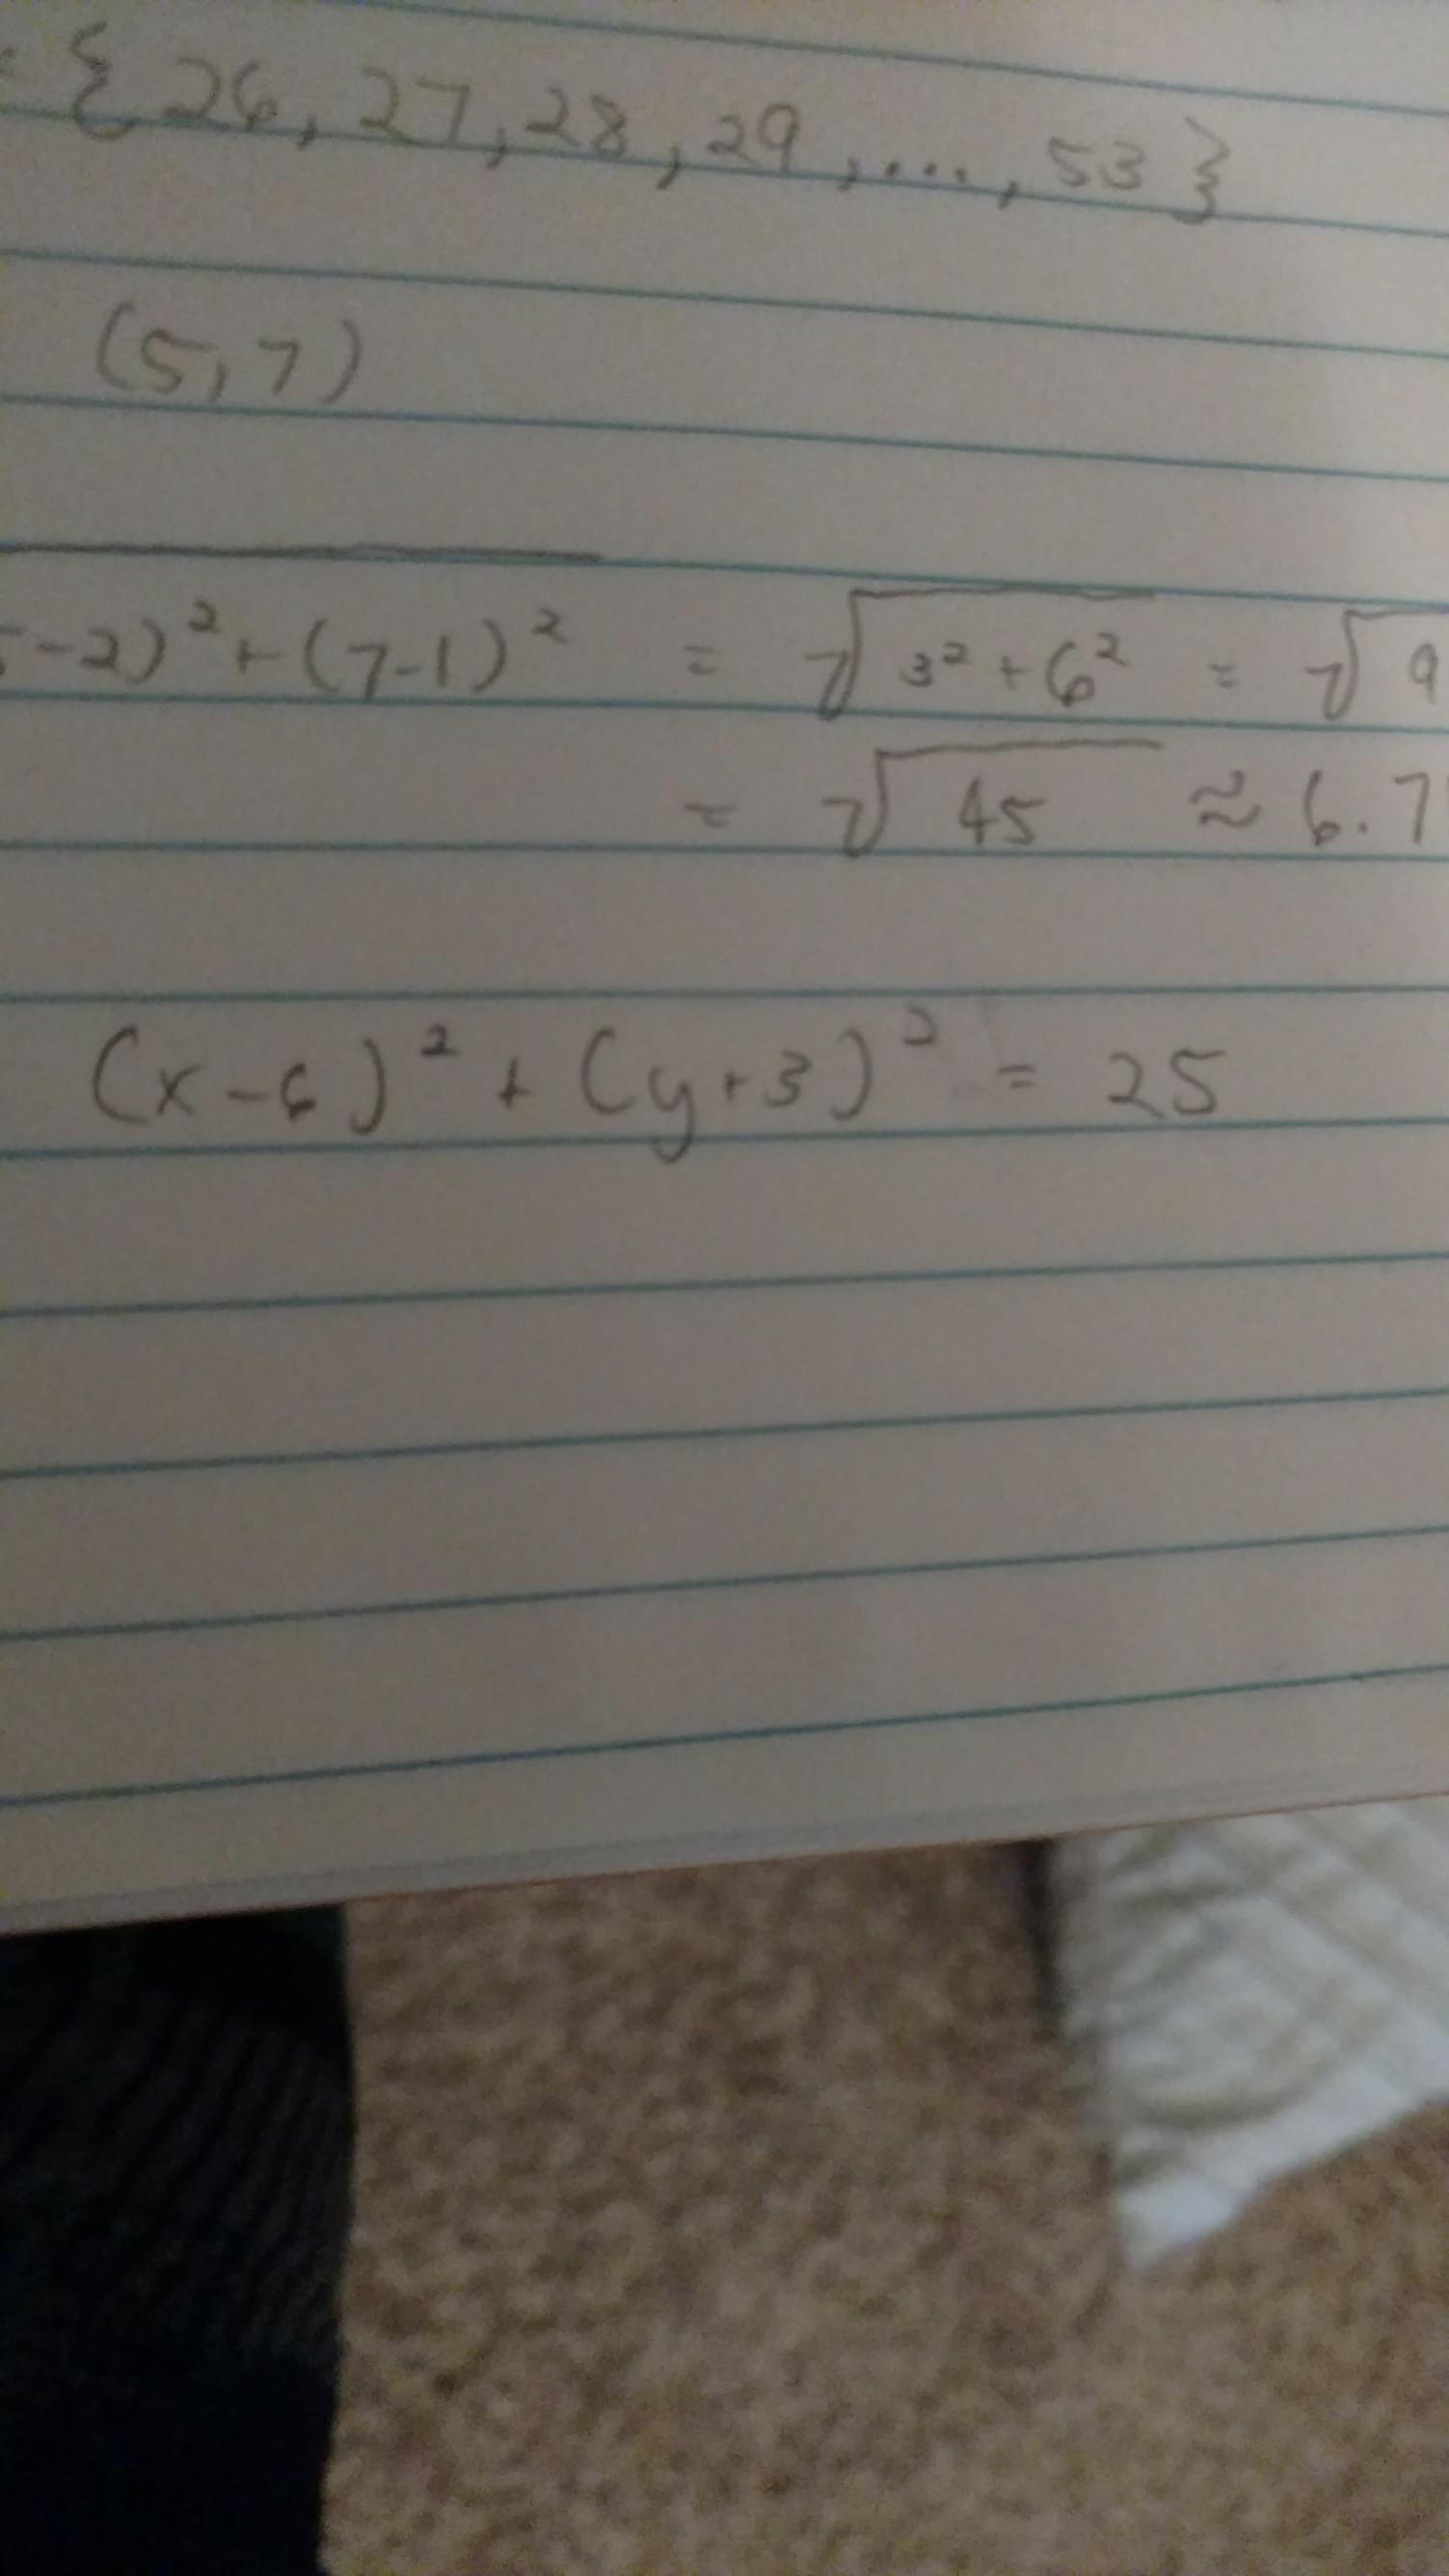 = { 26, 27, 28, 29, ..., 53 }
(5, 7)
-2)² + (7-1)² = √3² + 6² = √9
= √45 ≈ 6.7
(x-6)² + (y+3)² = 25